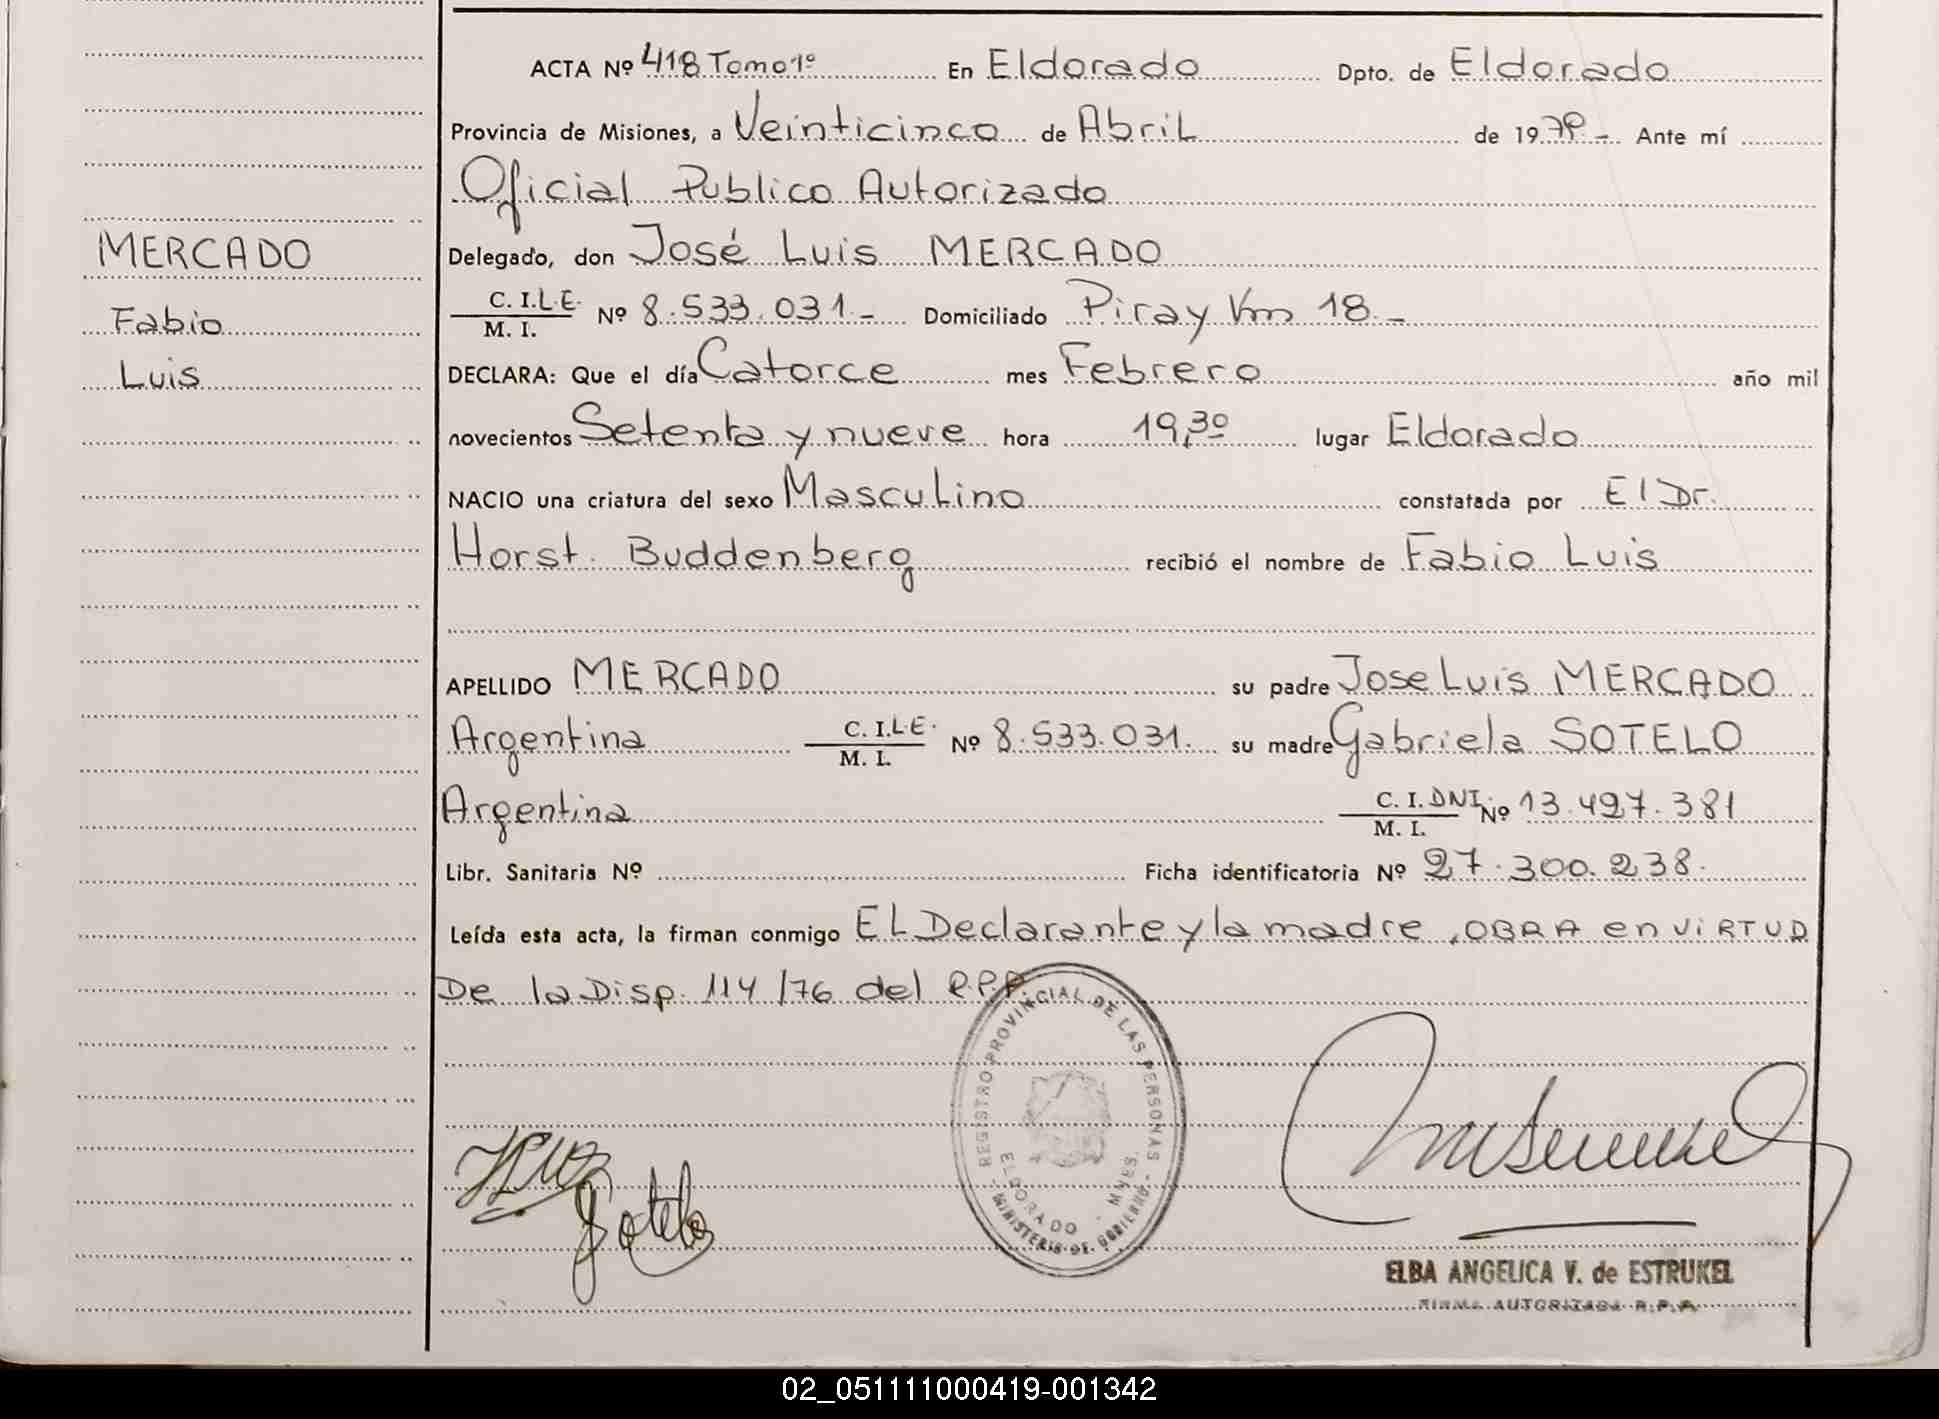 ACTA Nº 418 Tomo 1º En Eldorado Dpto. de Eldorado
Provincia de Misiones, a Veinticinco de Abril de 1979.- Ante mí
Oficial Publico Autorizado
MERCADO
Delegado, don José Luis MERCADO
Fabio
C. I. L.E. M. I. Nº 8.533.031.- Domiciliado Piray Km 18.-
Luis
DECLARA: Que el día Catorce mes Febrero año mil
novecientos Setenta y nueve hora 19,30 lugar Eldorado
NACIO una criatura del sexo Masculino constatada por El Dr.
Horst. Buddenberg recibió el nombre de Fabio Luis
APELLIDO MERCADO su padre Jose Luis MERCADO
Argentina C. I. L.E. M. I. Nº 8.533.031. su madre Gabriela SOTELO
Argentina C. I. DNI M. I. Nº 13.497.381
Libr. Sanitaria Nº Ficha identificatoria Nº 27.300.238.
Leída esta acta, la firman conmigo EL Declarante y la madre, OBRA en ViRTUD
De la Disp. 114/76 del R.P.P.
REGISTRO PROVINCIAL DE LAS PERSONAS
ELDORADO - MNES.
- MINISTERIO DE GOBIERNO -
Sotelo
ELBA ANGELICA V. de ESTRUKEL
FIRMA AUTORIZADA R.P.P.
02_051111000419-001342